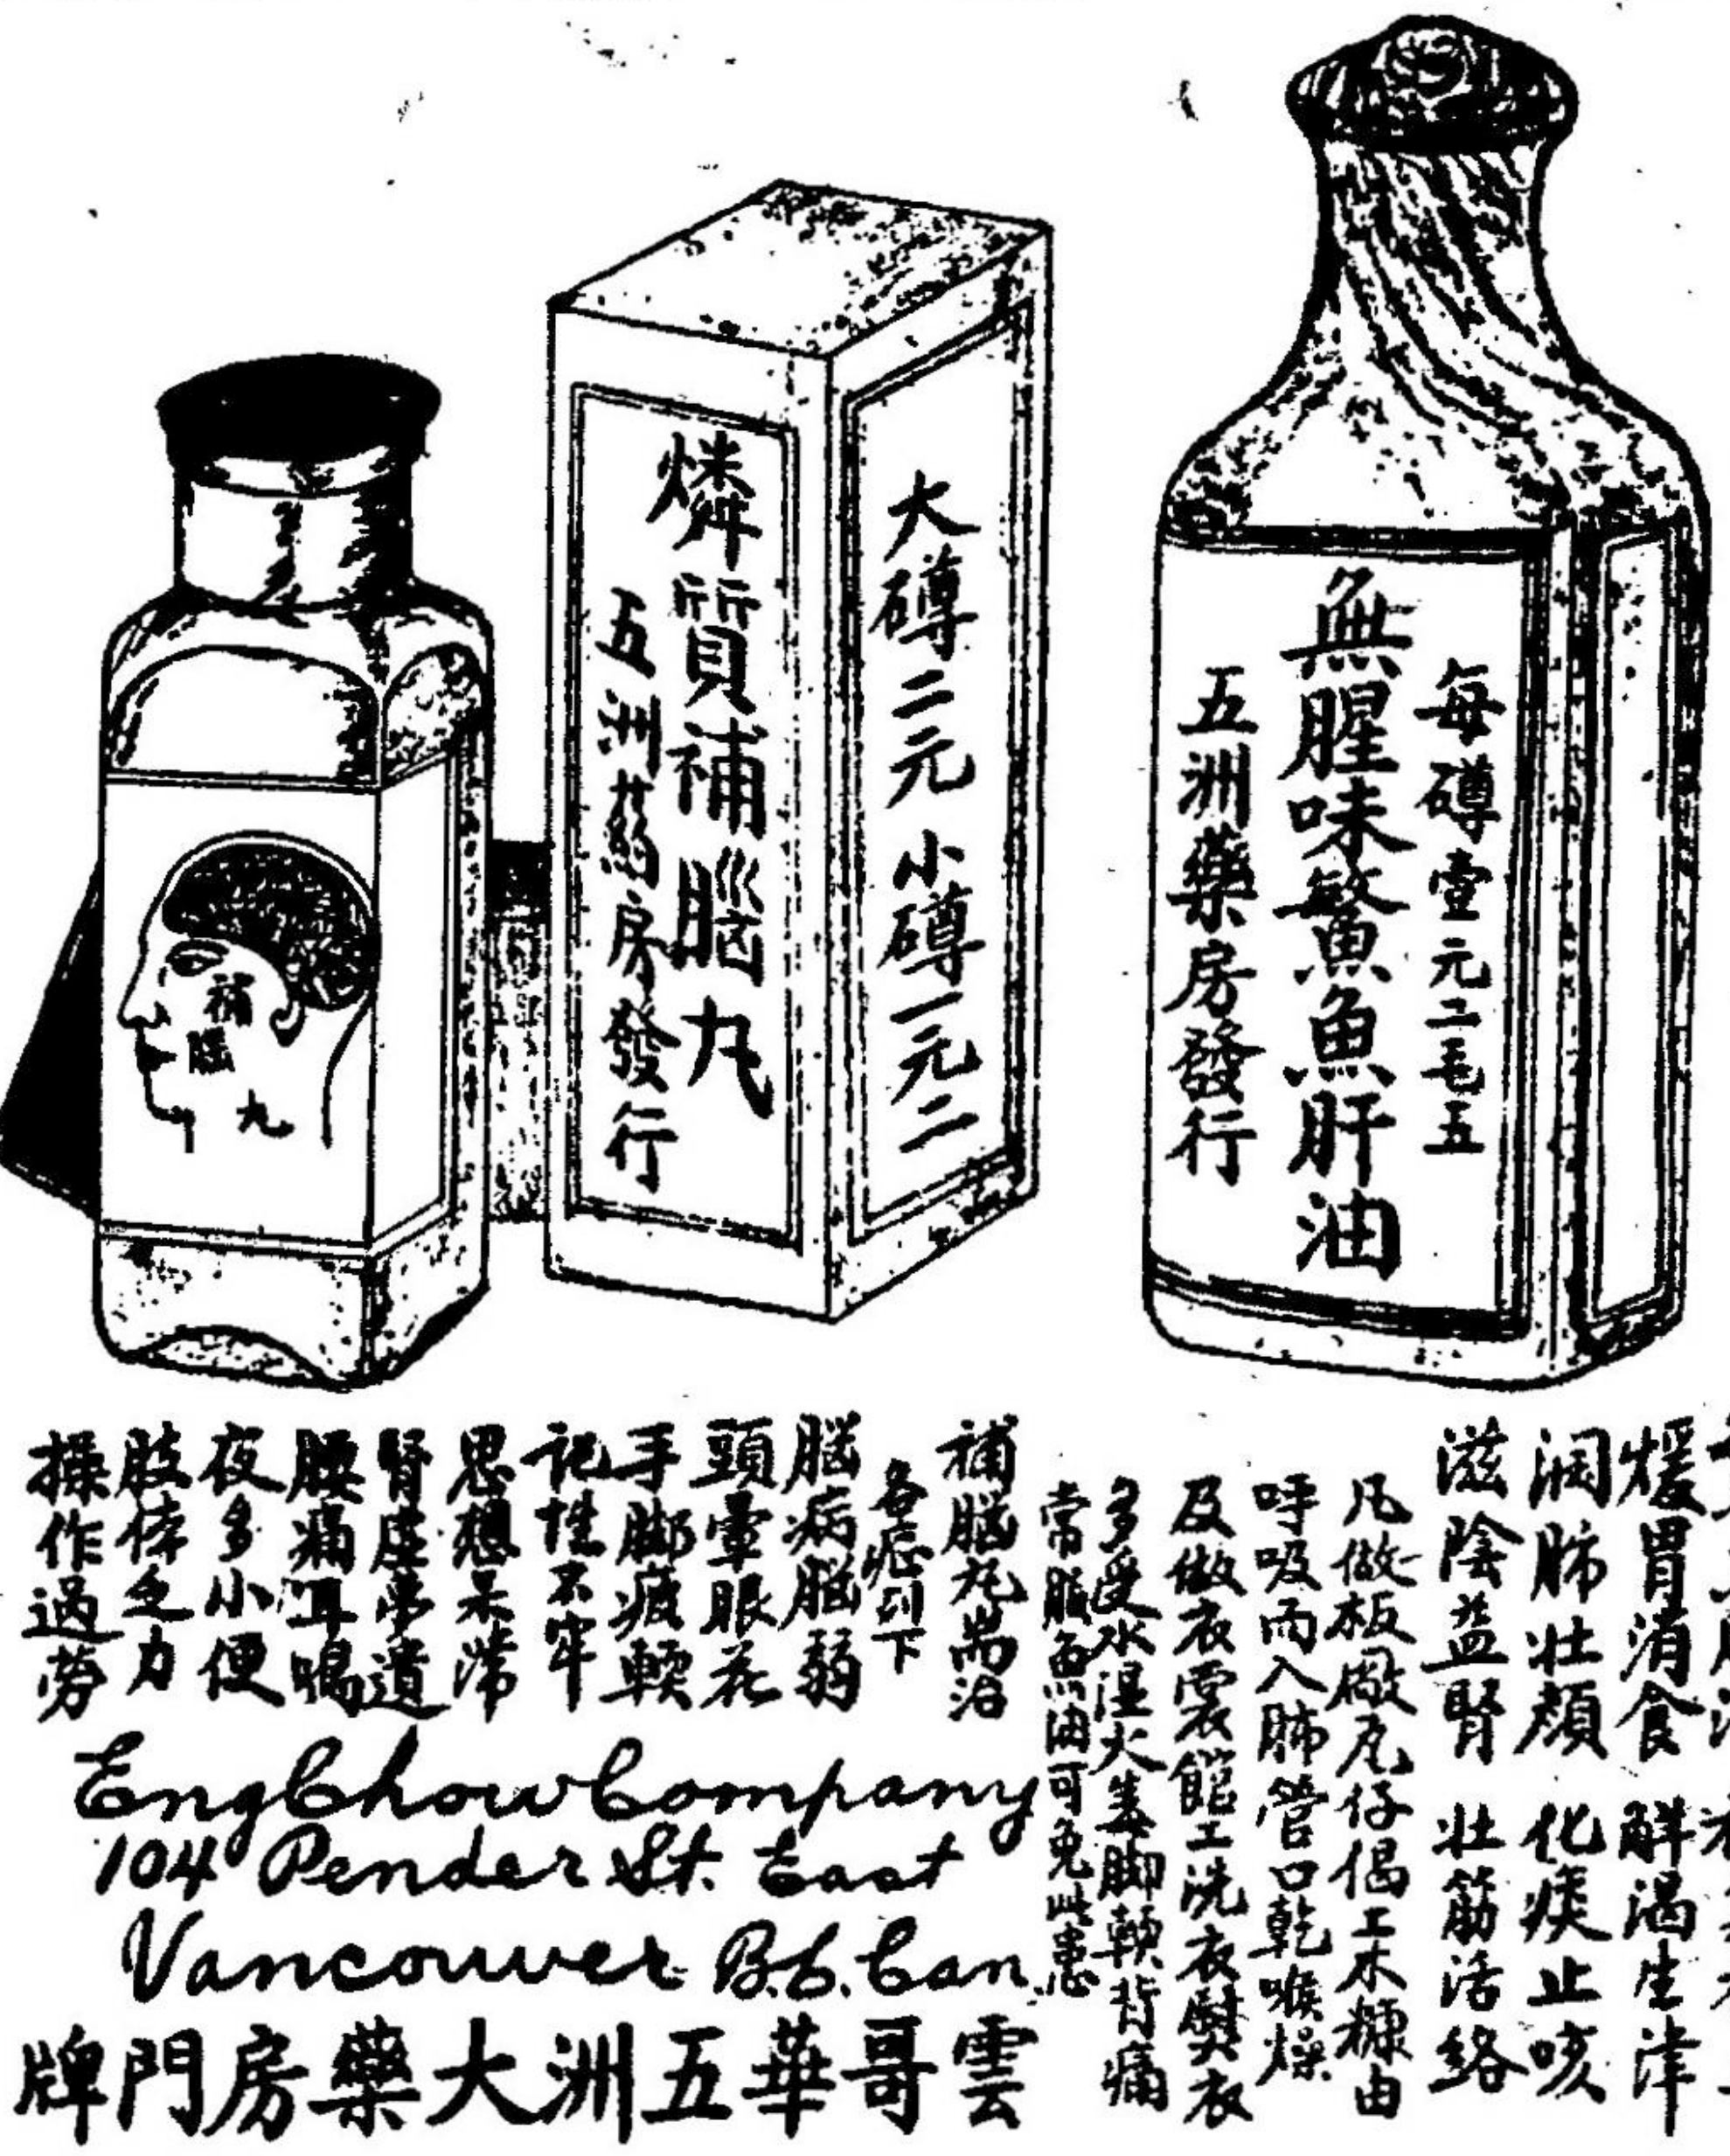 補
腦
丸
燐質補腦丸
五洲葯房發行
大罇二元 小罇一元二
每罇壹元二毛五
無腥味鰵魚肝油
五洲藥房發行
煖胃消食 解渴生津
润肺壮顏 化痰止咳
滋陰益腎 壯筋活絡
凡做板廠瓦仔偈工木糠由
呼吸而入肺管口乾喉燥
及做衣裳館工洗衣熨衣
多受水湿火毒脚軟背痛
常服魚油可免此患
補脳丸耑治
各症列下
脳病脳弱
頭暈眼花
手脚疲軟
記性不牢
思想呆滞
腎虛夢遺
腰痛耳鳴
夜多小便
肢体乏力
操作過劳
Eng Chow Company
104 Pender St. East
Vancouver B.C. Can.
雲哥華五洲大藥房門牌